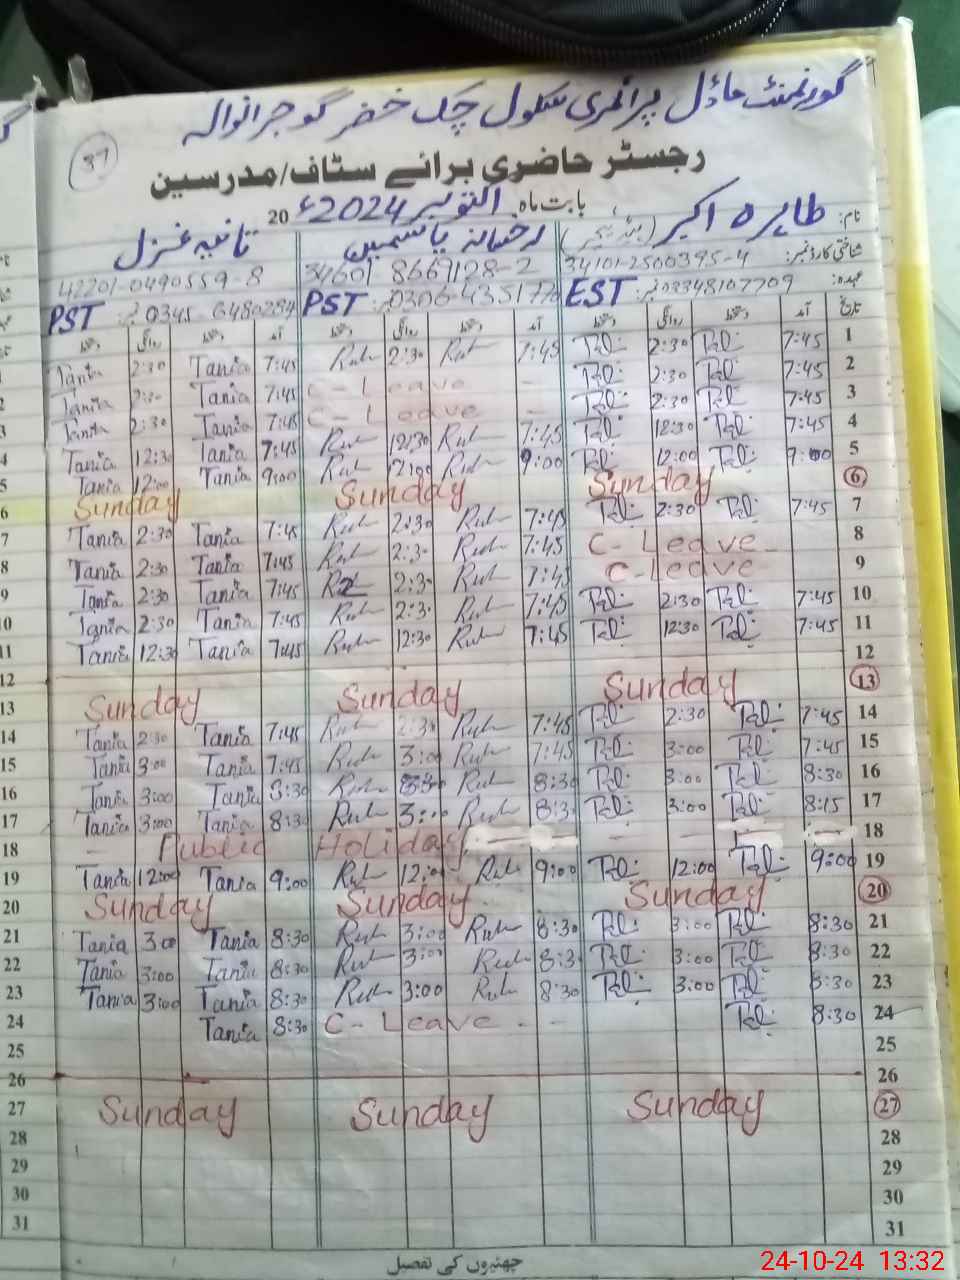 گورنمنٹ ماڈل پرائمری سکول چک خضر گوجرانوالہ
37
رجسٹر حاضری برائے سٹاف/مدرسین
بابت ماہ اکتوبر 2024ء 20
نام: طاہرہ اکبر (ہیڈ ٹیچر) رخسانہ یاسمین تانیہ غزل
شناختی کارڈ نمبر: 34101-2500395-4 34601 8667128-2 42201-0490559-8
عہدہ: EST نمبر: 03348107709 PST نمبر: 0306-4351770 PST نمبر: 0345-6480284
تاریخ آمد دستخط روانگی دستخط آمد دستخط روانگی دستخط آمد دستخط روانگی دستخط
1 7:45 2:30 7:45 Ruh 2:30 Ruh 7:45 Tania 2:30 Tania
2 7:45 2:30 C-Leave 7:45 Tania 2:30 Tania
3 7:45 2:30 C-Leave 7:45 Tania 2:30 Tania
4 7:45 12:30 7:45 Ruh 12:30 Ruh 7:45 Tania 12:30 Tania
5 9:00 12:00 9:00 Ruh 12:00 Ruh 9:00 Tania 12:00 Tania
6 Sunday Sunday Sunday
7 7:45 2:30 7:45 Ruh 2:30 Ruh 7:45 Tania 2:30 Tania
8 C-Leave 7:45 Ruh 2:3 Ruh 7:45 Tania 2:30 Tania
9 C-Leave 7:45 Ruh 2:3 7:45 Tania 2:30 Tania
10 7:45 2:30 7:45 Ruh 2:3 Ruh 7:45 Tania 2:30 Tania
11 7:45 12:30 7:45 Ruh 12:30 Ruh 7:45 Tania 12:30 Tania
12
13 Sunday Sunday Sunday
14 7:45 2:30 7:45 Ruh 2:30 Ruh 7:45 Tania 2:30 Tania
15 7:45 3:00 7:45 Ruh 3:00 Ruh 7:45 Tania 3:00 Tania
16 8:30 3:00 8:30 Ruh Ruh 8:30 Tania 3:00 Tania
17 8:15 3:00 8:3 Ruh 3:00 Ruh 8:30 Tania 3:00 Tania
18 Public Holiday
19 9:00 12:00 9:00 Ruh 12:00 Ruh 9:00 Tania 12:00 Tania
20 Sunday Sunday Sunday
21 8:30 3:00 8:30 Ruh 3:00 Ruh 8:30 Tania 3:00 Tania
22 8:30 3:00 8:3 Ruh 3:00 Ruh 8:30 Tania 3:00 Tania
23 8:30 3:00 8:30 Ruh 3:00 Ruh 8:30 Tania 3:00 Tania
24 8:30 C-Leave 8:30 Tania
25
26
27 Sunday Sunday Sunday
28
29
30
31
چھٹیوں کی تفصیل
24-10-24 13:32